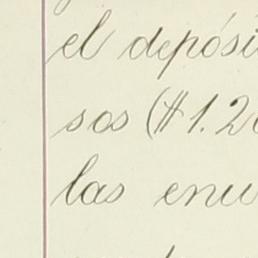 el depósi
sos ($1.20
las enu